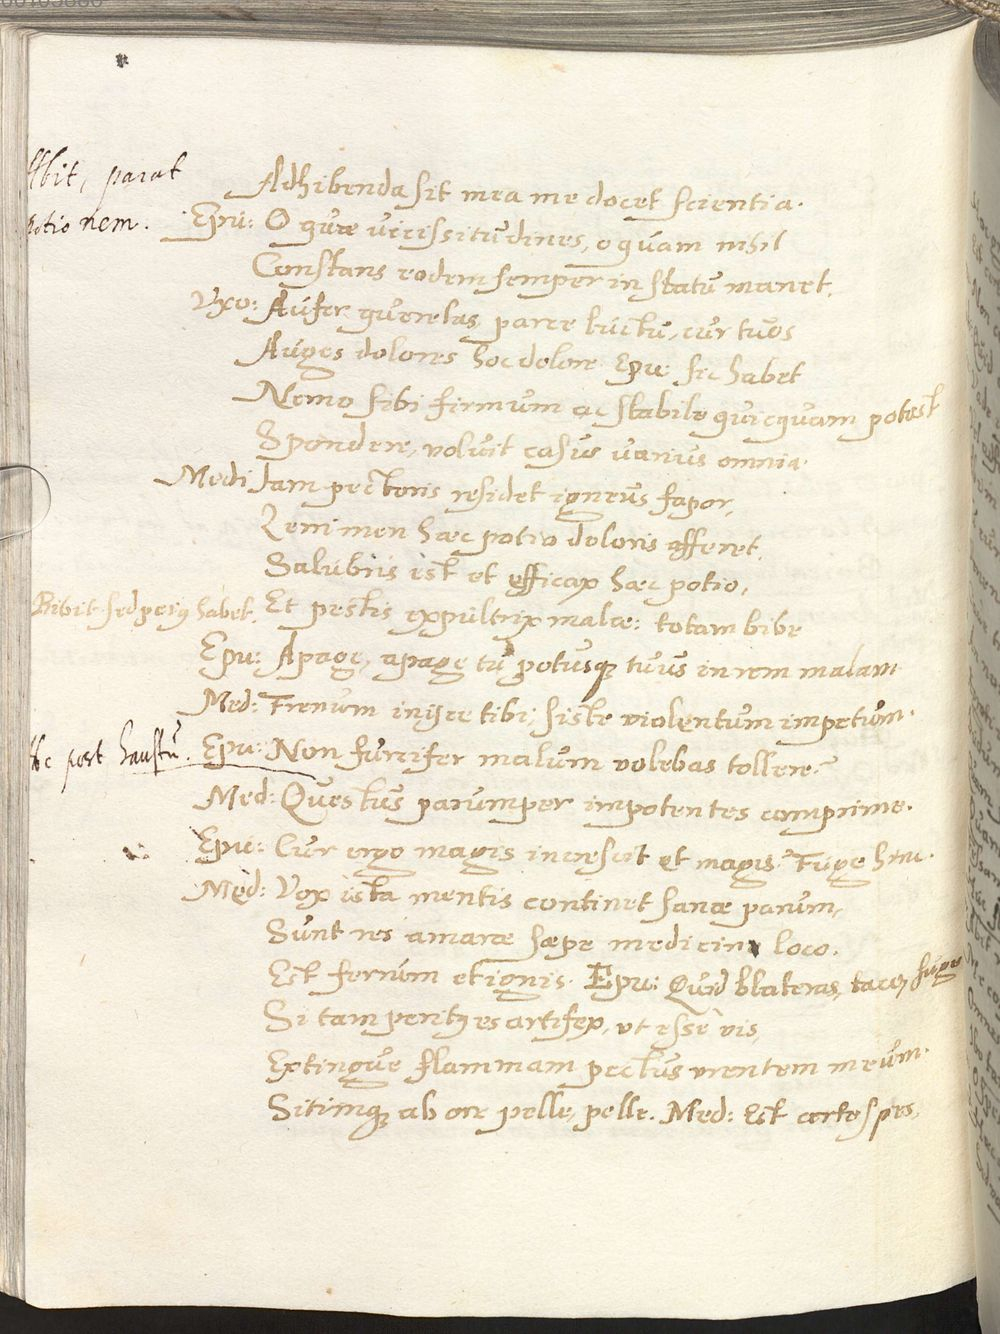 Abit, parat
potionem.
Adhibenda sit mea me docet scientia.
Epu: O quæ vicissitudines, o quam nihil
Constans eodem semper in statu manet.
Vxo: Aufer querelas, parce luctu, cur tuos
Auges dolores hoc dolore. Epu: sic habet
Nemo sibi firmum ac stabile quicquam potest
Spondere, voluit casus varius omnia.
Medi Iam pectoris residet igneus sapor,
Lenimen hæc potio doloris afferet,
Salubris est et efficax hæc potio,
Bibit sed peius habet. Et pestis expultrix malæ: totam bibe
Epu: Apage, apage tu potusq tuus in rem malam
Med: Frenum inijce tibi, siste violentum impetum.
Hæc post haustū. Epu: Non furcifer malum volebas tollere?
Med: Questus parumper impotentes comprime.
Epu: Cur ergo magis increscit et magis? Fuge hinc.
Med: Vox ista mentis continet sanæ parum,
Sunt res amaræ sæpe medicinæ loco.
Est ferrum et ignis. Epu: Quid blateras, tace, fuge
Si tam peritus es artifex, vt esse vis,
Extingue flammam pectus urentem meum.
Sitimq ab ore pelle, pelle. Med: Est certe spes,